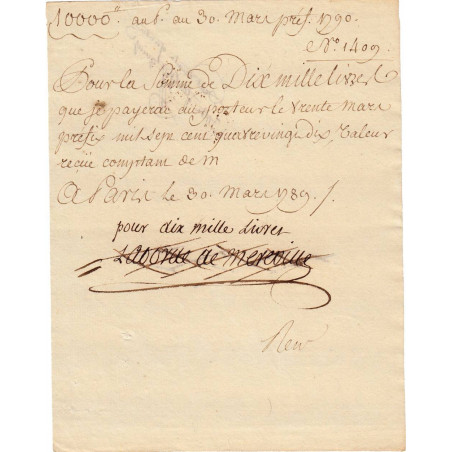 10000ᵗᵗ au P. au 30. Mars préf. 1790.
Nº. 1409.
Pour la Somme de Dix mille livres
que je payerai au porteur le trente mars
prefix mil sept cent quatrevingt dix, valeur
reçüe comptant de m
A Paris le 30. Mars 1789 ./.
pour dix mille livres
Laborde de mereville